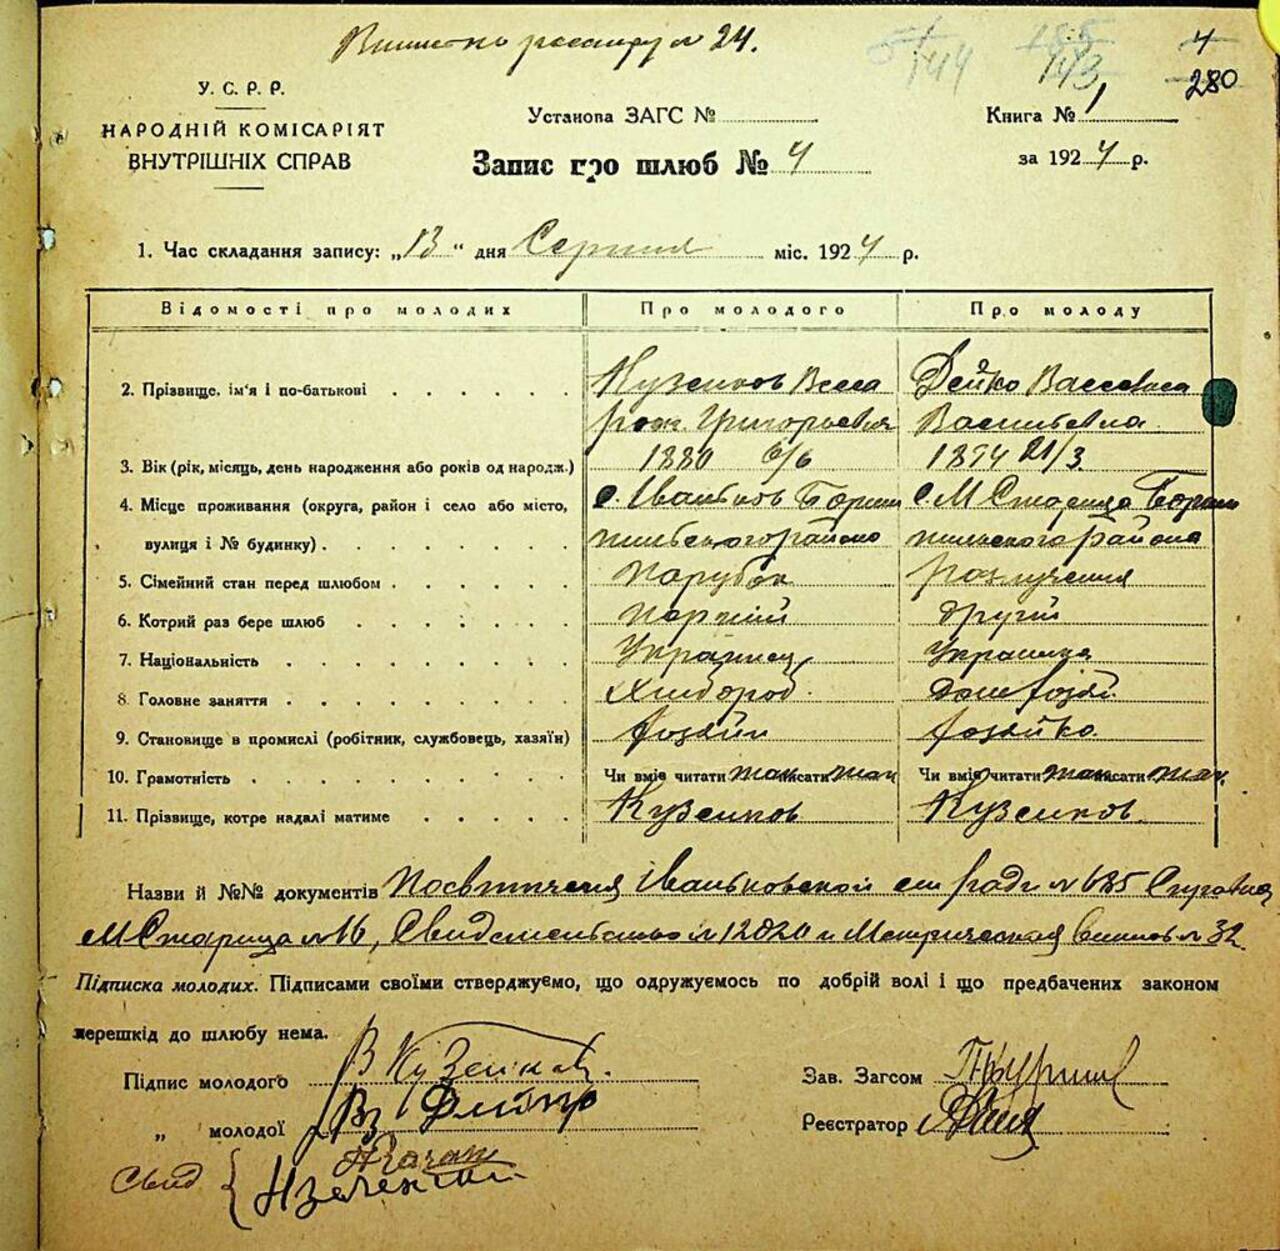 № 24.
144
185
143
4
280
У. С. Р. Р.
НАРОДНІЙ КОМІСАРІЯТ
ВНУТРІШНІХ СПРАВ
Установа ЗАГС №
Запис про шлюб № 4
Книга № 1
за 1924 р.
1. Час складання запису: „13“ дня Серпня міс. 1924 р.
Відомості про молодих Про молодого Про молоду
2. Прізвище, ім'я і по-батькові Кузенков Дейко
Григорьевич Васильевна
3. Вік (рік, місяць, день народження або років од народж.) 1880 6/6 1894 21/3
4. Місце проживання (округа, район і село або місто, с. Іваньков Борис с. М Старица Борис
вулиця і № будинку) пильського района пильского района
5. Сімейний стан перед шлюбом Парубок
6. Котрий раз бере шлюб Перший Другий
7. Національність Украинец Украинка
8. Головне заняття Хлібороб
9. Становище в промислі (робітник, службовець, хазяїн) Хозяин Хозяйка
10. Грамотність Чи вміє читати так писати так Чи вміє читати так писати так
11. Прізвище, котре надалі матиме Кузенков Кузенков
Назви й №№ документів Посвітчення Іваньковской ради № 635
М Старица № 16, № 12020 и Метрическая № 32
Підписка молодих. Підписами своїми стверджуємо, що одружуємось по добрій волі і що предбачених законом
перешкід до шлюбу нема.
Підпис молодого В Кузенков
Зав. Загсом
„ молодої
Реєстратор
Свид {